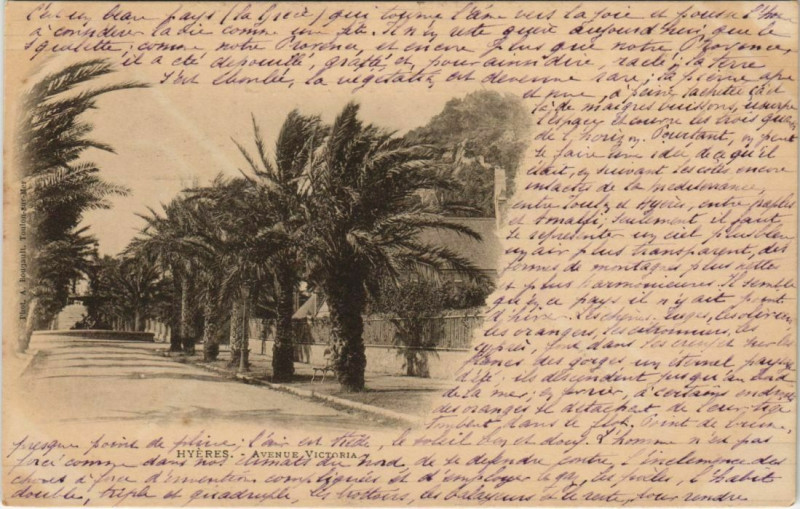 C'est un beau pays (la Grèce) qui tourne l'âme vers la joie et pousse l'homme
à considérer la vie comme une fête. Il n'y reste guère aujourd'hui que le
squelette; comme notre Provence, et encore plus que notre Provence,
il a été dépouillé, gratté et, pour ainsi dire, raclé; la terre
s'est éboulée, la végétation est devenue rare; la pierre âpre
et nue, à peine tachetée çà et
là de maigres buissons, usurpe
l'espace et couvre les trois quarts
de l'horizon. Pourtant, on peut
se faire une idée de ce qu'il
était, en suivant les côtes encore
intactes de la Méditerranée,
entre Toulon et Hyères, entre Naples
et Amalfi; seulement il faut
se représenter un ciel plus bleu
un air plus transparent, des
formes de montagnes plus nettes
et plus harmonieuses. Il semble
qu'en ce pays il n'y ait point
d'hiver. Les chênes-lièges, les oliviers,
les orangers, les citronniers, les
cyprès, font dans les creux et sur les
flancs des gorges un éternel paysage
d'été; ils descendent jusqu'au bord
de la mer; en février, à certains endroits
des oranges se détachent de leur tige
tombent dans le flot. Point de brume,
presque point de pluie; l'air est tiède, le soleil bon et doux. L'homme n'est pas
forcé comme dans nos climats du Nord, de se défendre contre l'inclémence des
choses à force d'inventions compliquées et d'employer le gaz, les poêles, l'habit
double, triple et quadruple, les trottoirs, les balayeurs et le reste, pour rendre
HYÈRES. - AVENUE VICTORIA
Phot. A. Bougault, Toulon-sur-Mer